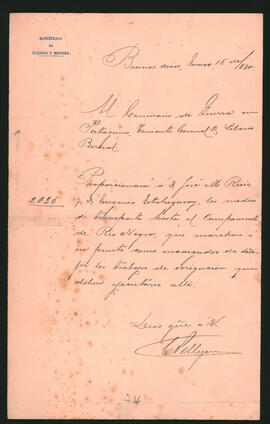 MINISTERIO
DE
GUERRA Y MARINA
Buenos aires, Enero 15 de/ 1880.
Al Comisario de Guerra en
Patagones, Teniente Coronel D. Liborio
Bernal
Proporcionará á D. José M. Ruiz
y D. Eugenio los medios
2035
de transporte hasta el Campamento
de Rio Negro, que marchan á
ese punto como encargados de
los trabajos de irrigacion que
deben ejecutarse allí.
Dios güe á V.
CPellegrini
74